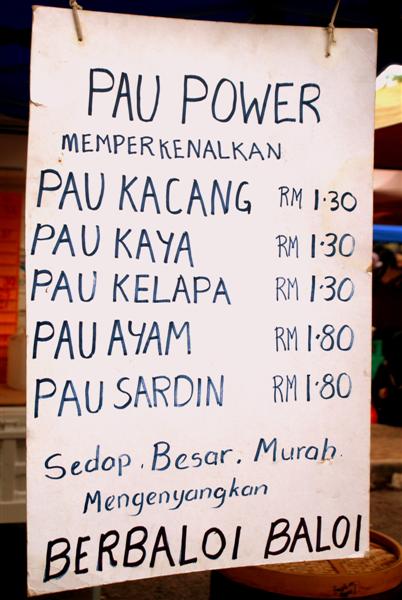 PAU POWER
MEMPERKENALKAN
PAU KACANG RM 1·30
PAU KAYA RM 1·30
PAU KELAPA RM 1·30
PAU AYAM RM 1·80
PAU SARDIN RM 1·80
Sedap. Besar. Murah.
Mengenyangkan
BERBALOI BALOI